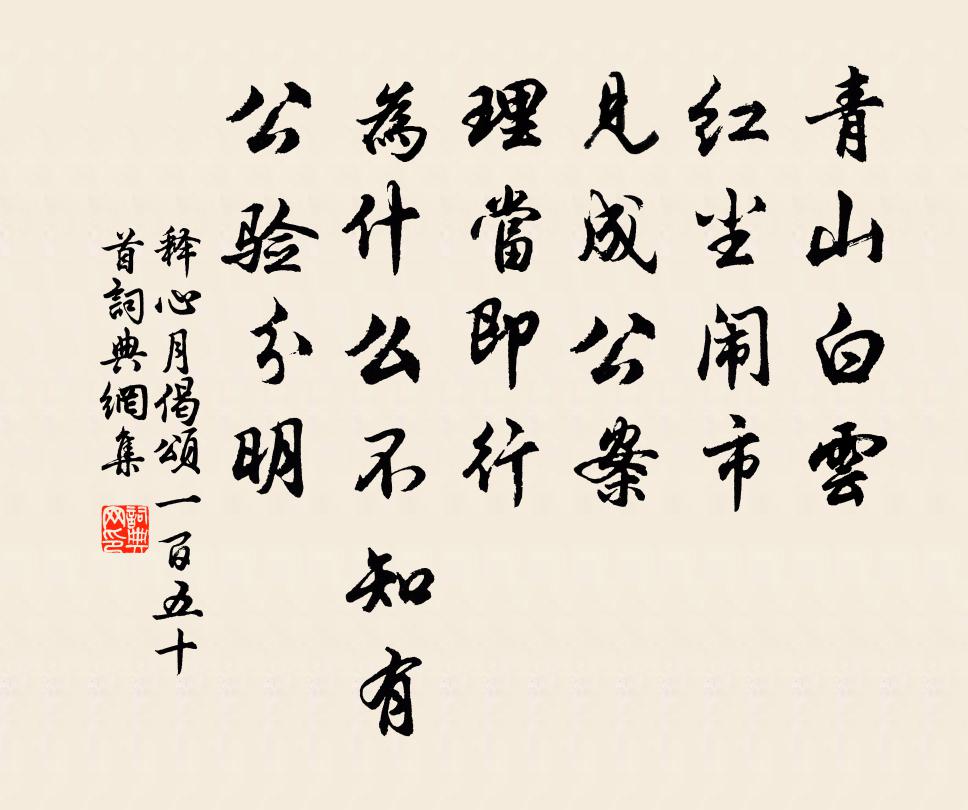 青山白雲
红尘闹市
見成公案
理當即行
為什么不知有
公验分明
释心月偈頌一百五十
首詞典網集
詞典网印